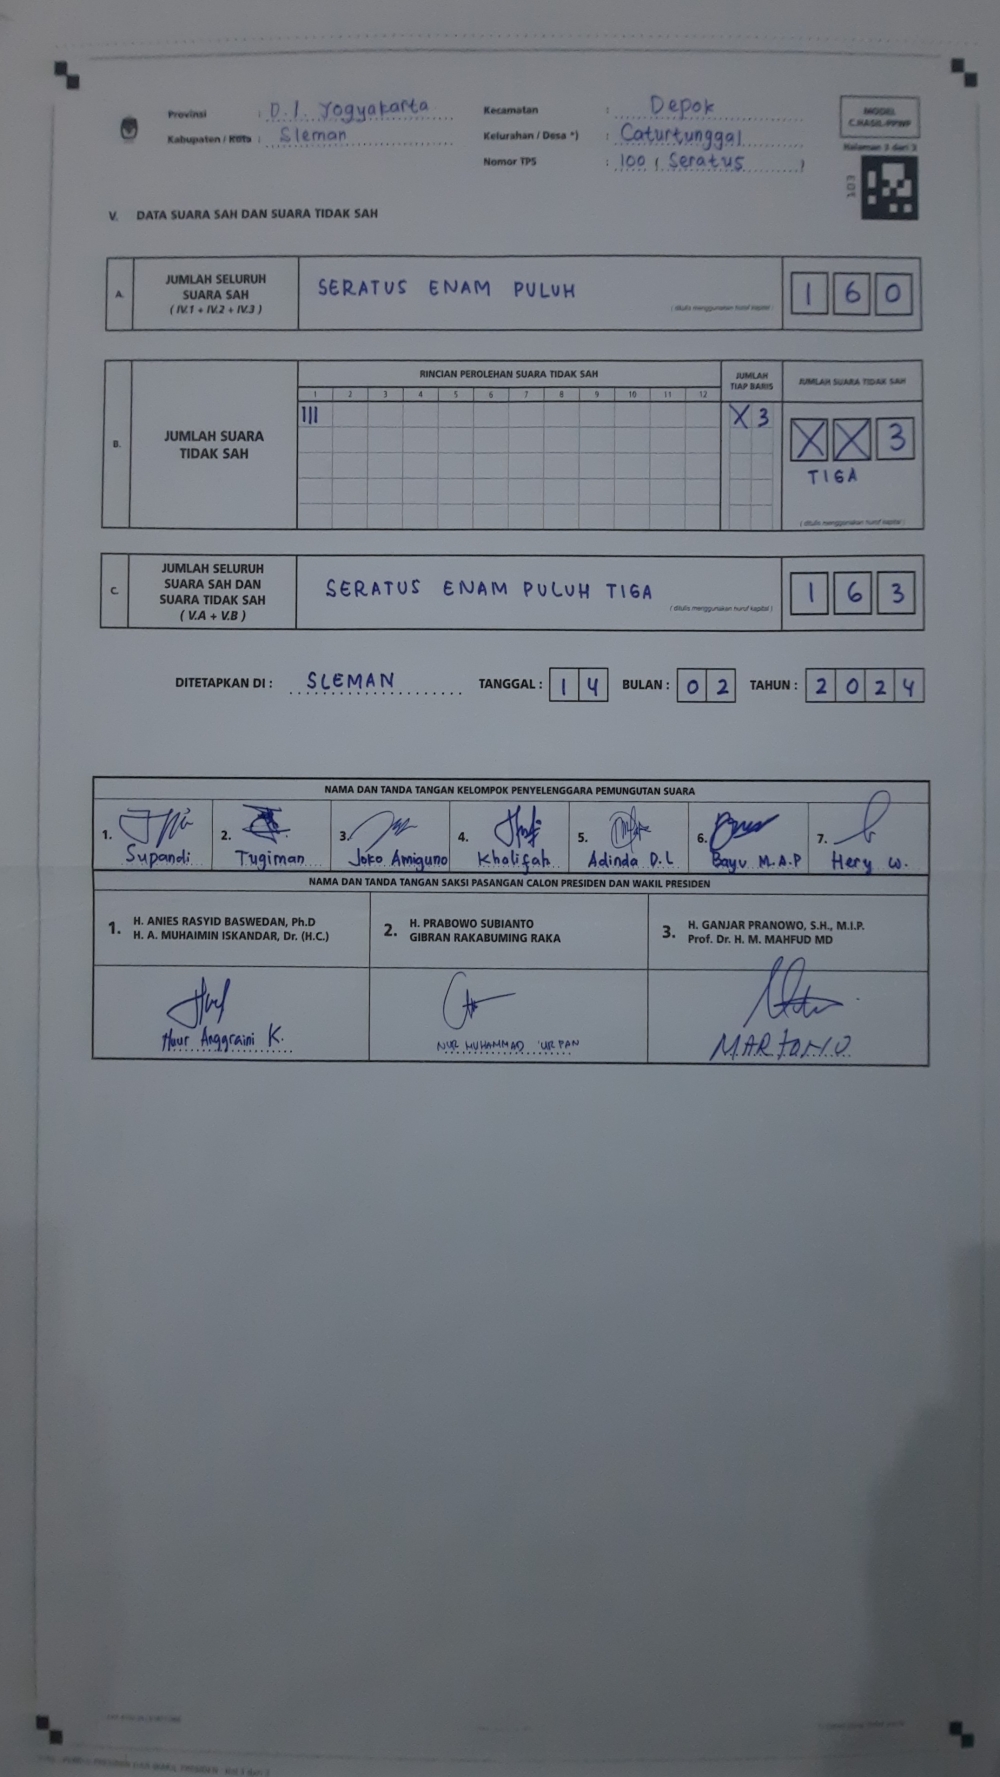 Provinsi : D.I. Yogyakarta
Kabupaten / Kota : Sleman
Kecamatan : Depok
Kelurahan / Desa *) : Caturtunggal
Nomor TPS : 100 ( Seratus )
MODEL
C.HASIL-PPWP
Halaman 3 dari 3
103
V. DATA SUARA SAH DAN SUARA TIDAK SAH
A. JUMLAH SELURUH SUARA SAH ( IV.1 + IV.2 + IV.3 )
SERATUS ENAM PULUH
( ditulis menggunakan huruf kapital )
1 6 0
B. JUMLAH SUARA TIDAK SAH
RINCIAN PEROLEHAN SUARA TIDAK SAH
1 2 3 4 5 6 7 8 9 10 11 12
JUMLAH TIAP BARIS
JUMLAH SUARA TIDAK SAH
III
X 3
X X 3
TIGA
( ditulis menggunakan huruf kapital )
C. JUMLAH SELURUH SUARA SAH DAN SUARA TIDAK SAH ( V.A + V.B )
SERATUS ENAM PULUH TIGA
( ditulis menggunakan huruf kapital )
1 6 3
DITETAPKAN DI : SLEMAN TANGGAL : 1 4 BULAN : 0 2 TAHUN : 2 0 2 4
NAMA DAN TANDA TANGAN KELOMPOK PENYELENGGARA PEMUNGUTAN SUARA
1. 2. 3. 4. 5. 6. 7.
Supandi Tugiman Joko Amiguno Kholifah Adinda D.L Bayu M.A.P Hery W.
NAMA DAN TANDA TANGAN SAKSI PASANGAN CALON PRESIDEN DAN WAKIL PRESIDEN
1. H. ANIES RASYID BASWEDAN, Ph.D
H. A. MUHAIMIN ISKANDAR, Dr. (H.C.)
2. H. PRABOWO SUBIANTO
GIBRAN RAKABUMING RAKA
3. H. GANJAR PRANOWO, S.H., M.I.P.
Prof. Dr. H. M. MAHFUD MD
Anggraini K.
NUR MUHAMMAD
MARTONO